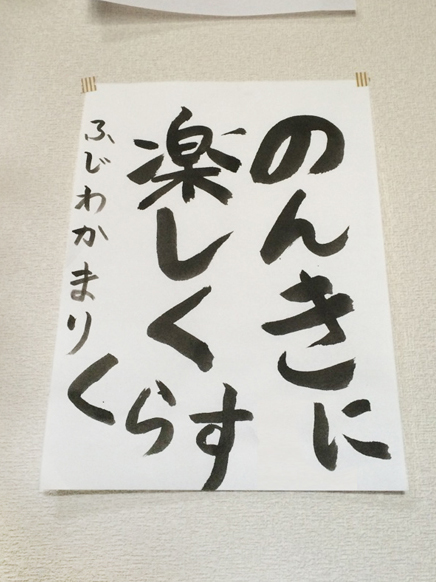 のんきに
楽しく
くらす
ふじわかまり